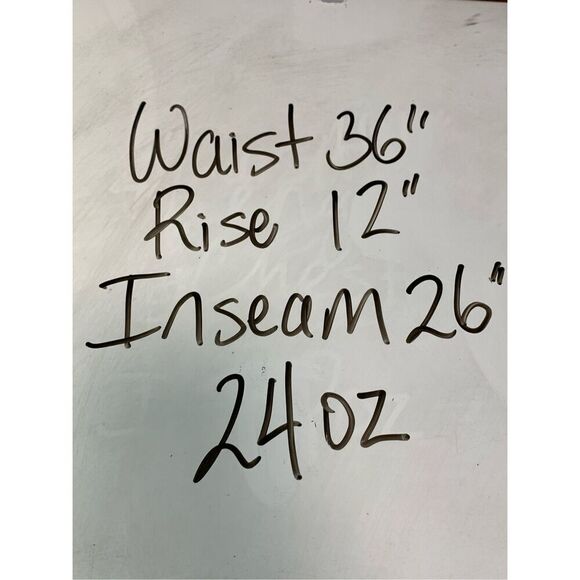 Waist 36"
Rise 12"
Inseam 26"
24 oz